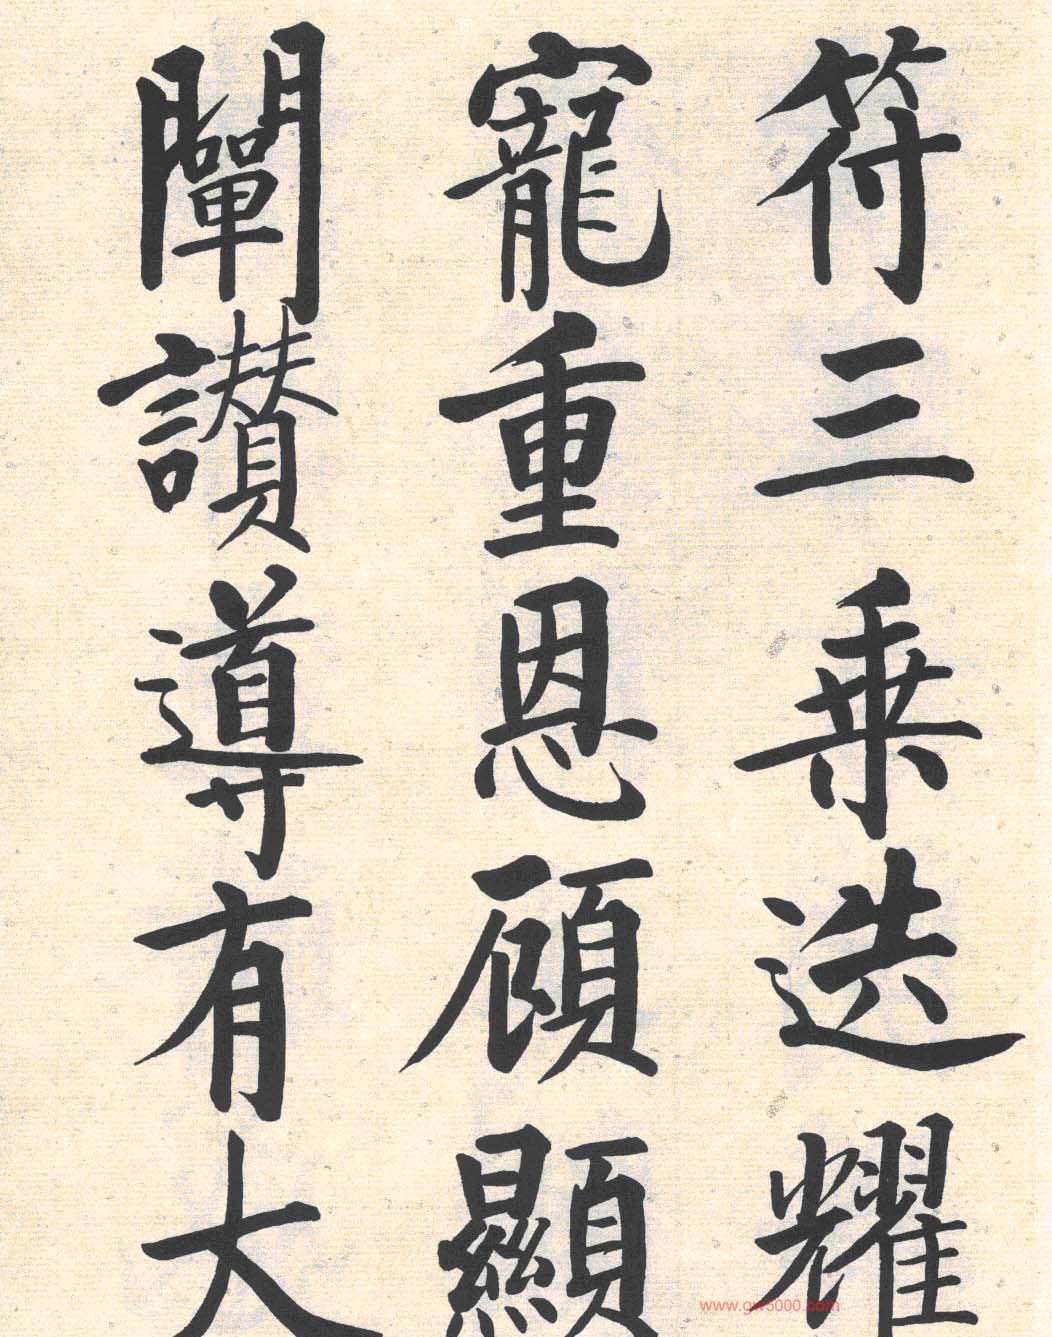 符三乗迭耀
寵重恩顧顯
闡讃導有大
www.gw5000.com